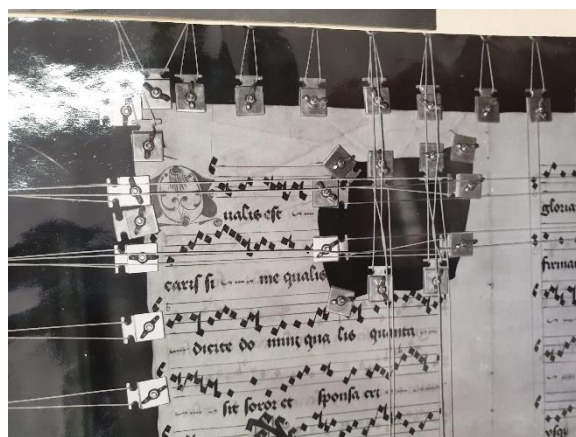 Qualis est
caris si me qualis
dicite do minj qua lis quanta
sit soror et sponsa cri
gloria
firma
vsq